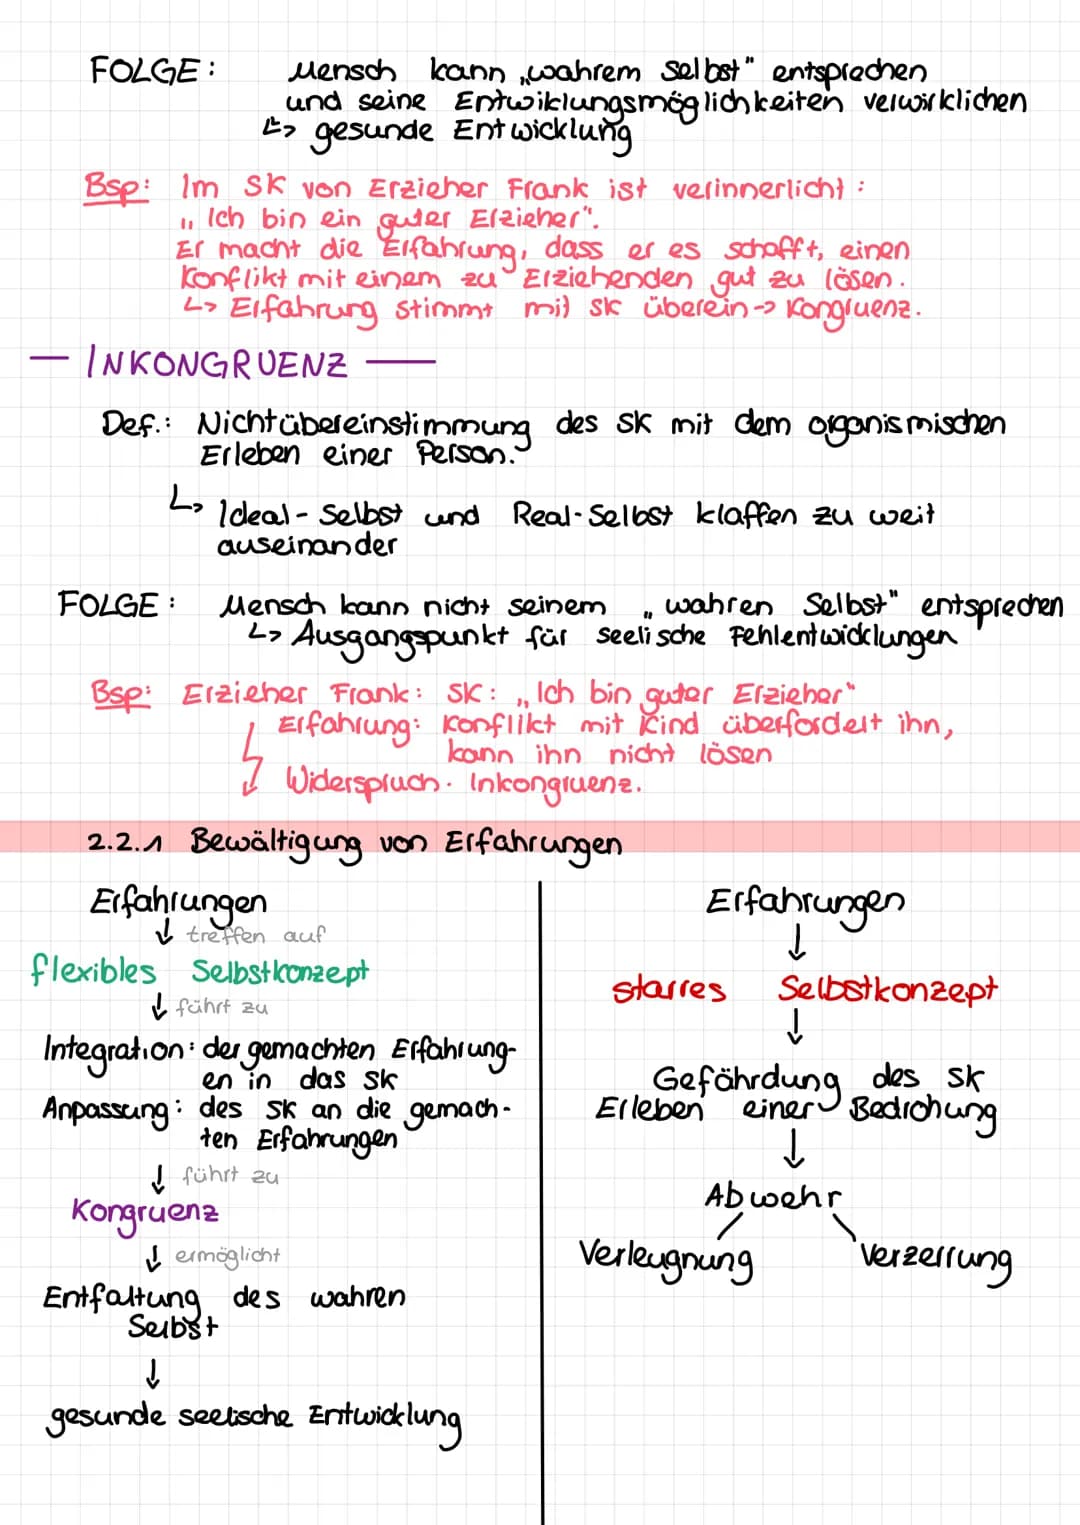 FOLGE: Mensch kann „wahrem Selbst" entsprechen
und seine Entwiklungsmöglichkeiten verwirklichen
↳ gesunde Entwicklung
Bsp: Im SK von Erzieher Frank ist verinnerlicht:
„Ich bin ein guter Erzieher".
Er macht die Erfahrung, dass er es schafft, einen
Konflikt mit einem zu Erziehenden gut zu lösen.
↳ Erfahrung stimmt mit SK überein → Kongruenz.
— INKONGRUENZ —
Def.: Nichtübereinstimmung des SK mit dem organismischen
Erleben einer Person.
↳ Ideal-Selbst und Real-Selbst klaffen zu weit
auseinander
FOLGE: Mensch kann nicht seinem „wahren Selbst" entsprechen
↳ Ausgangspunkt für seelische Fehlentwicklungen
Bsp: Erzieher Frank: SK: „Ich bin guter Erzieher"
Erfahrung: Konflikt mit Kind überfordert ihn,
kann ihn nicht lösen
Widerspruch. Inkongruenz.
2.2.1 Bewältigung von Erfahrungen
Erfahrungen
↓ treffen auf
flexibles Selbstkonzept
↓ führt zu
Integration: der gemachten Erfahrung-
en in das SK
Anpassung: des SK an die gemach-
ten Erfahrungen
↓ führt zu
Kongruenz
↓ ermöglicht
Entfaltung des wahren
Selbst
↓
gesunde seelische Entwicklung
Erfahrungen
↓
starres Selbstkonzept
↓
Gefährdung des SK
Erleben einer Bedrohung
↓
Abwehr
Verleugnung Verzerrung